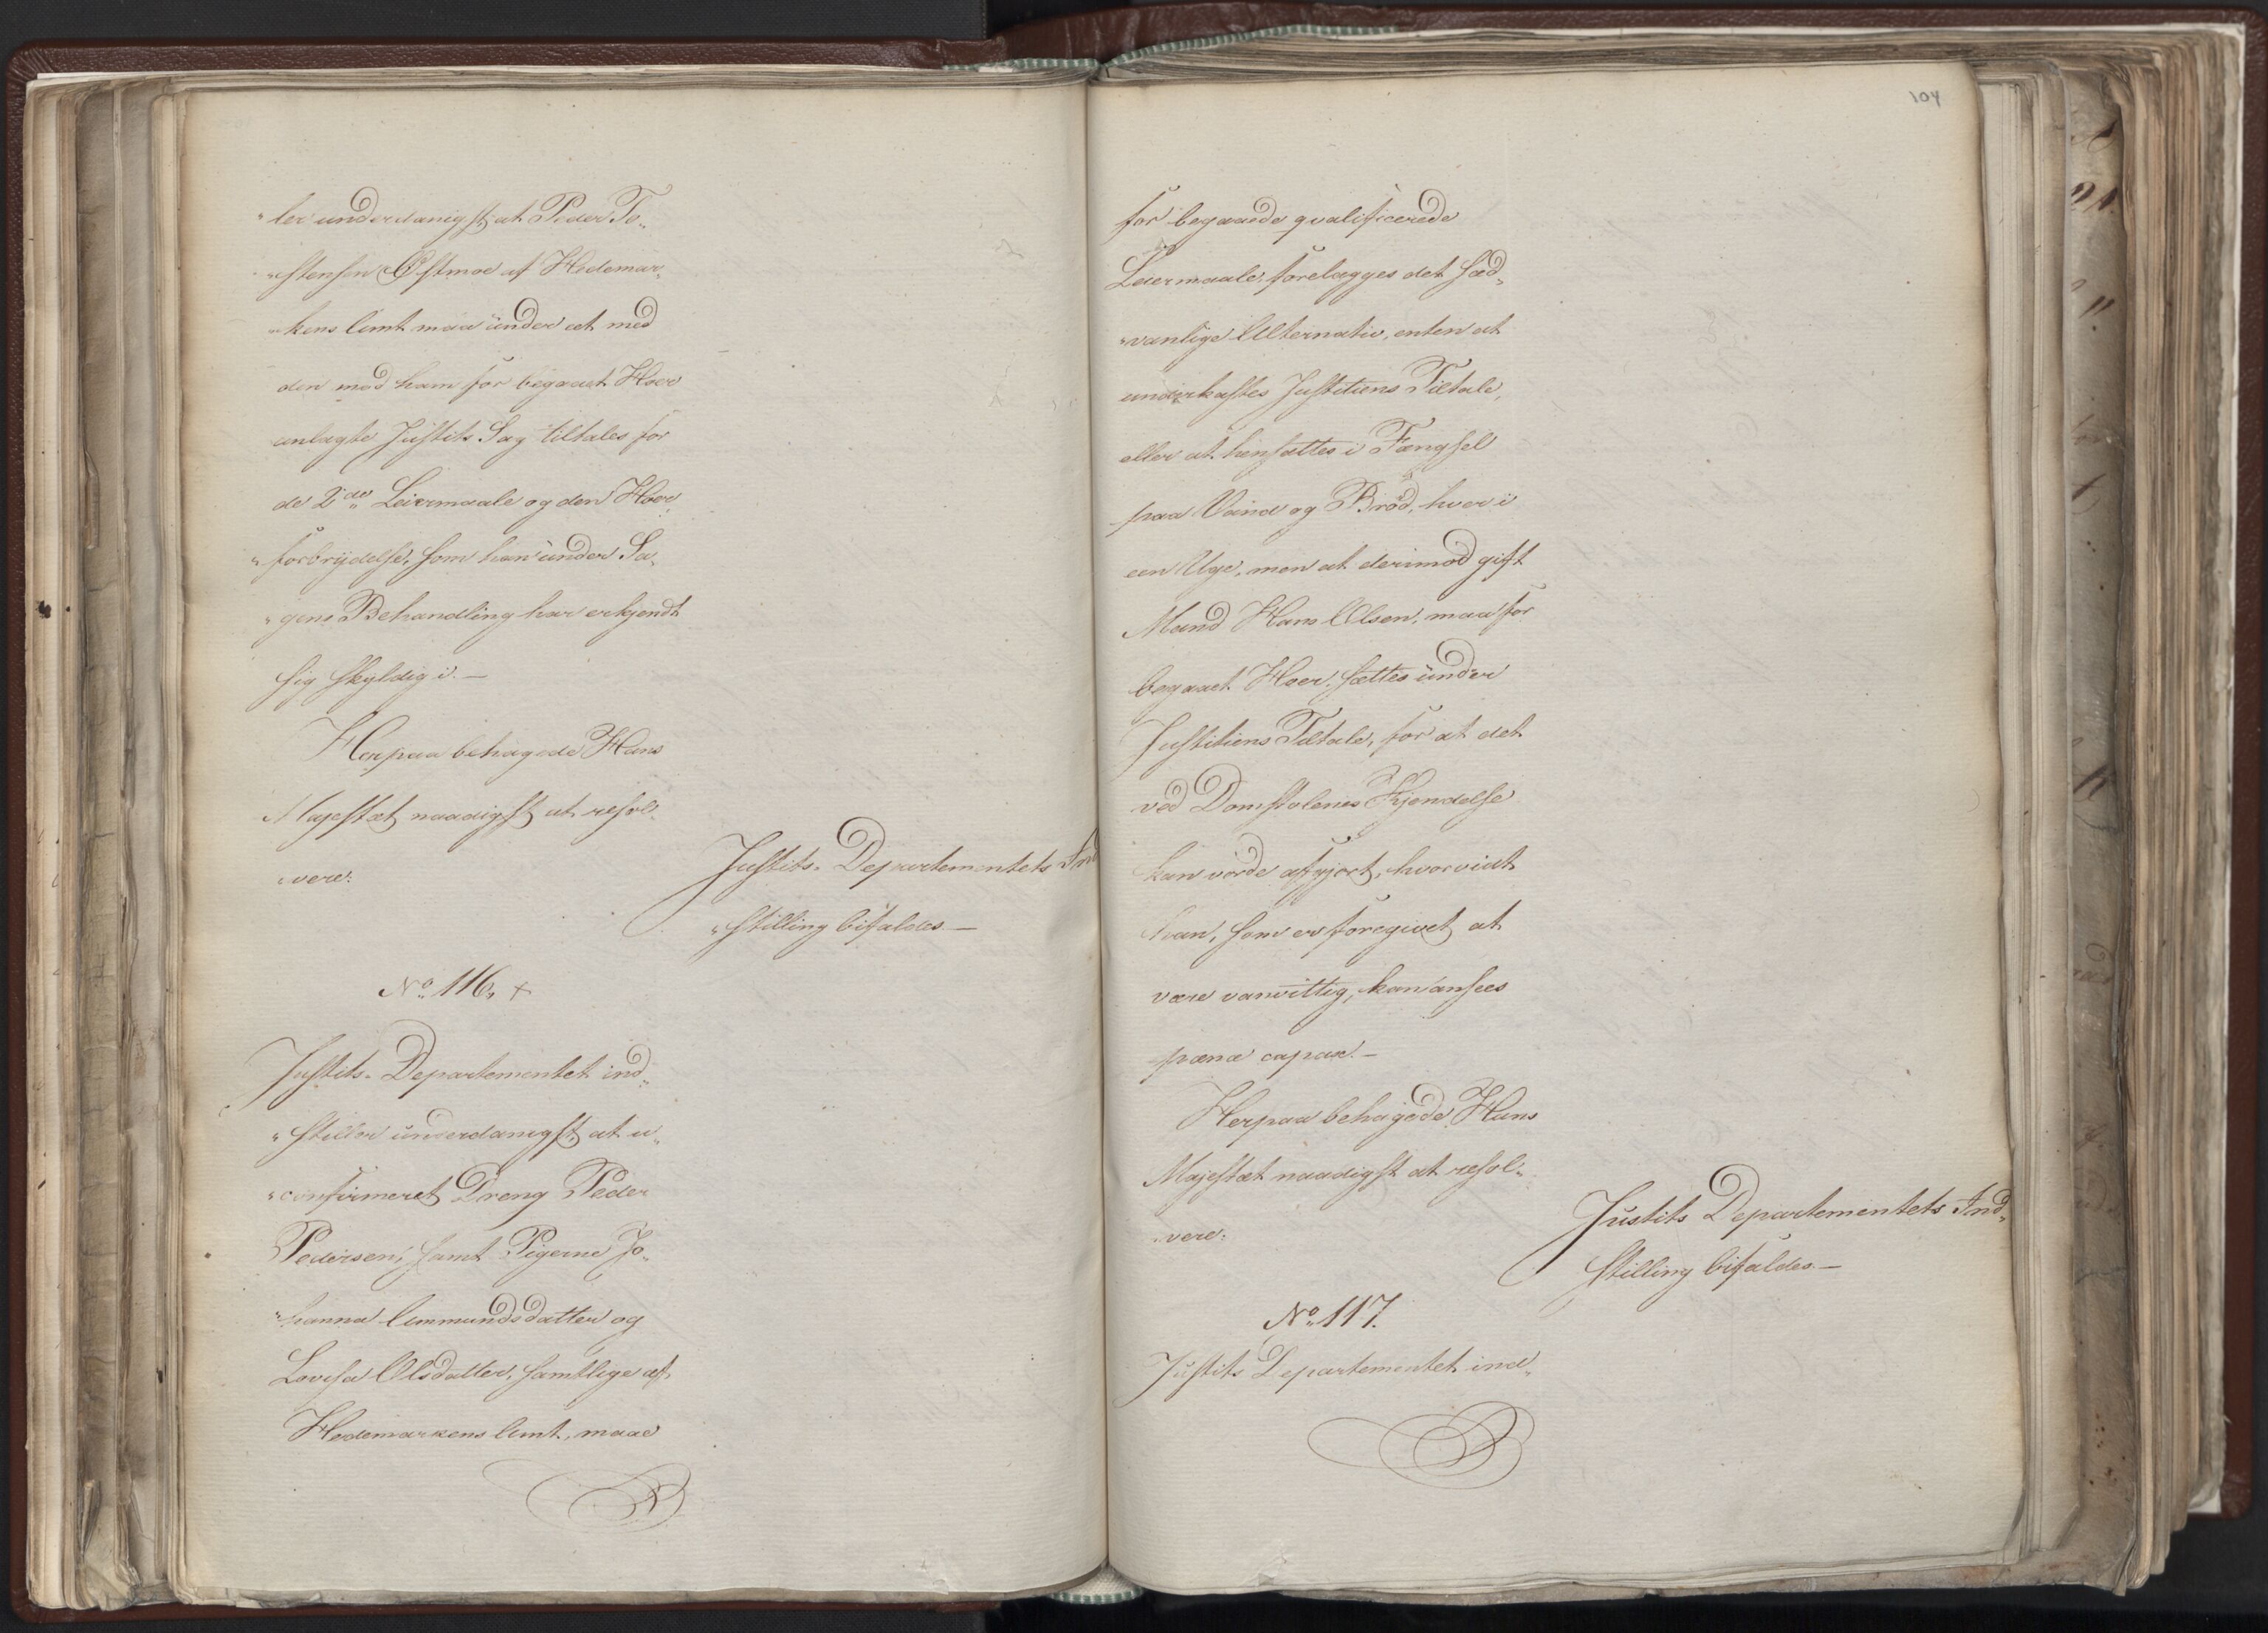 „ler underdanigst at Peder To„
„stensen Østmoe af Hedemar„
„kens Amt maa under et med
den mod ham for begaaet Hoer
anlagte Justits Sag tiltales for
de 2de Leiermaale og den Hoer„
„forbrydelse, som han under Sa„
„gens Behandling har erkjendt
sig skyldig i.—
Herpaa behagede Hans
Majestæt naadigst at resol„
„vere:
Justits-Departementets Ind
„stilling bifaldes.—
No. 116. +
Justits-Departementet ind„
„stiller underdanigst, at u„
„confirmeret Dreng Peder
Pedersen, samt Pigerne Jo„
„hanna Ammundsdatter og
Lovisa Olsdatter, samtlige af
Hedemarkens Amt, maae
104
for begaaede qvalificerede
Leiermaale, forelægges det sæd„
„vanlige Alternativ, enten at
underkastes Justitiens Tiltale,
eller at hensættes i Fængsel
paa Vand og Brød, hver i
een Uge, men at derimod gift
Mand Hans Olsen, maa for
begaaet Hoer, sættes under
Justitiens Tiltale, for at det
ved Domstolenes Kjendelse
kan vorde afgjort, hvorvidt
han, som er foregivet at
være vanvittig, kan ansees
poenæ capax.—
Herpaa behagede Hans
Majestæt naadigst at resol„
„vere:
Justits Departementets Ind„
stilling bifaldes.—
No. 117.
Justits Departementet ind„